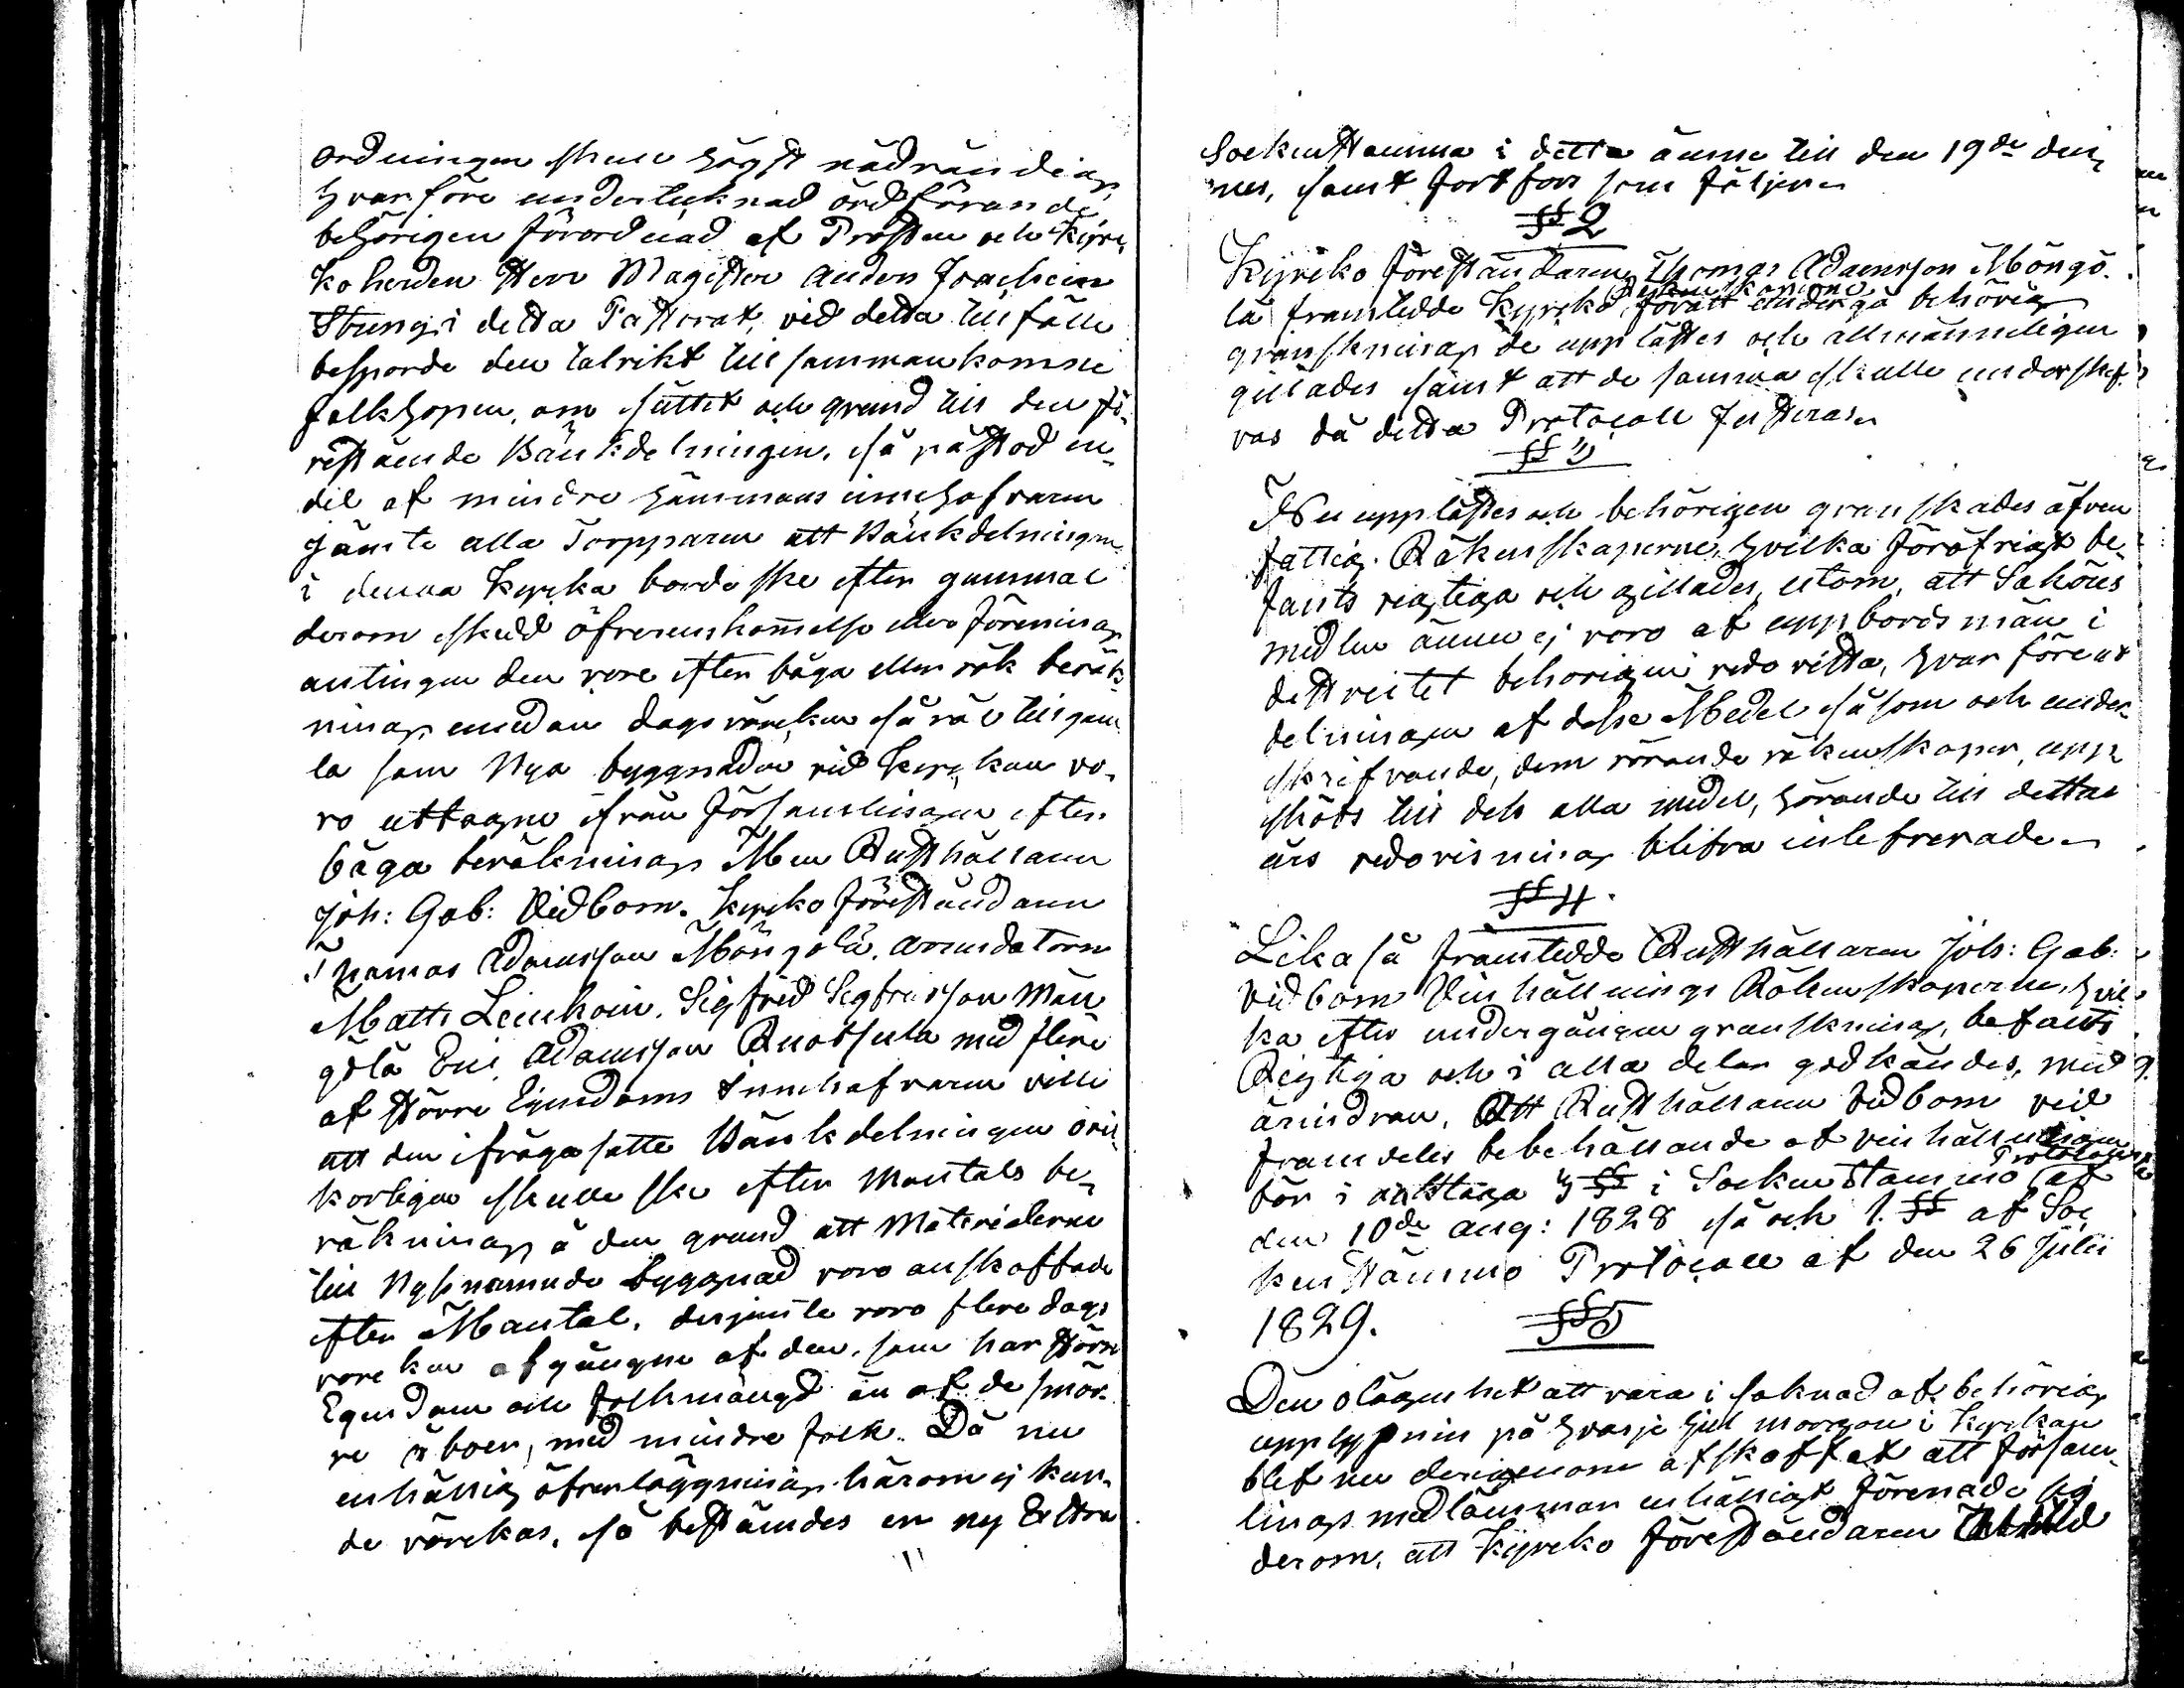 ordningen skulle högst nödvändig,
hvarföre undertecknad ordförande,
behörigen förordnad af Prosten och Kyr-
koherden Herr Magister Anders Joachim
Streng i detta Pastorat, vid detta tillfälle
besporde den talrikt till sammankomne
folkhopen, om sättet och grund till den fö-
restående Bänkdelningen, så påstod en
del af mindre hemmans innehafvaren
jämte alla Torpparen att Bänkdelningen
i denna Kyrka borde ske efter gammal
derom skedd öfverenskommelse eller förening
antingen den vore efter båga eller rök beräk-
ning emedan dagsvärken så väl till gam-
la som Nya byggnader vid Kyrkan vo-
ro uttagne ifrån Församlingen efter
båga beräkning Men Rusthållaren
Joh: Gab: Vidbom. Kyrko föreståndaren
Thomas Adamsson Möngölä, Arrendatorn
Matts Leinkoin. Sigfrid Sigfridsson Män
gölä Eric Adamsson Ruotsula med flere
af större Egendoms Innehafvaren ville
att den ifrågasatte Bänkdelningen ovil-
korligen skulle ske efter Mantals be-
räkning å den grund att Materialerne
till Nyssnämnde byggnad voro anskaffade
efter Mantal, desjemte voro flere dags
verken afgångne af dem, som har större
Egendom och folkmängd än af de smär-
re åboer, med mindre folk. Då nu
enhällig öfverläggning härom ej kun-
de värckas, så bestämdes en ny Extra

Sockenstämma i detta ämne till den 19de den-
nes, samt fortfors som följer
§§ 2
Kyrko föreståndaren Thomas Adamsson Möngö-
lä framledde Kyrko Räkenskaperne föratt undergå behörig
granskning de upplästes och allmänneligen
gillades samt att de samma skulle underskrif-
vas då detta Protocoll Justeras
§§ 3
Nu upplästes och behörigen granskades äfven
fattig. Räkenskaperne, hvilka föröfrigt be-
fants riagtiga och gillades, utom, att Saköres
medlen ännu ej voro af uppbördsmän i
distrigtet behörigen redovista, hvarföre ut
delningen af desse Medel såsom och under-
skrifvande, dem rörande räkenskaper, upp-
sköts till dess alla medel, hörande till dettas
års redovisning blifva inlefrerade
§§ 4.
Lika så framledde Rusthållaren Joh: Gab:
Vidbom Vinhållnings Räkenskaperne, hvil-
ka efter undergången granskning, befants
Rigtiga och i alla delar godkändes, med
ärindran, Att Rusthållaren Vidbom vid
framdeles bebehållande af vinhållningen
bör i akttaga 3 §§ i Sockenstämmo Protocollet af
den 10de Aug: 1828 så och 1. §§ af Soc
kenstämmo Protocoll af den 26 Julii
1829. §§ 5
Den olägenhet att vara i saknad af behörig
upplysnin på hvarje Jul morgon i Kyrkan
blef nu derigenom afskaffat att försam-
lings medlämmar enhälligt förenade sig
derom, att Kyrko föreståndaren